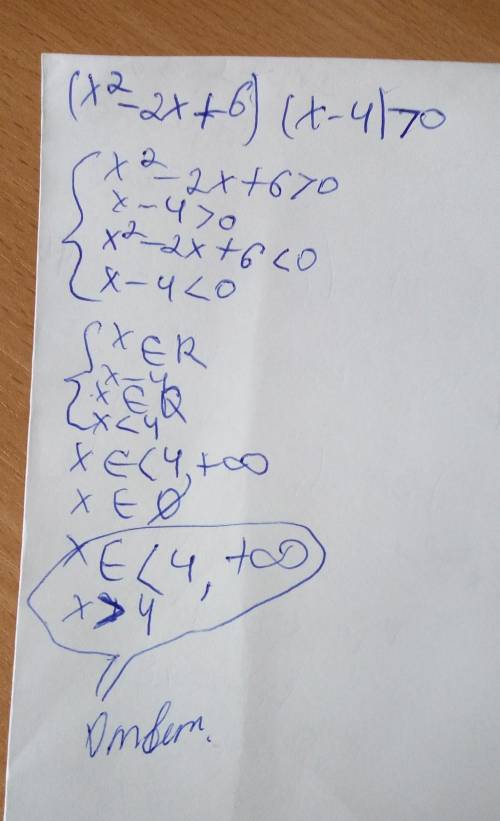 (x²-2x+6) (x-4)>0
x²-2x+6>0
x-4>0
x²-2x+6<0
x-4<0
x∈R
x=4
x∈Ø
x<4
x∈<4,+∞
x∈Ø
x∈<4,+∞
x>4
Ответ.